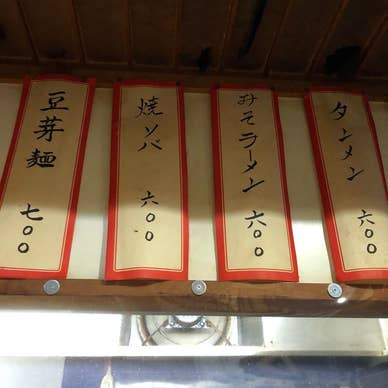 タンメン 六〇〇
みそラーメン 六〇〇
焼ソバ 六〇〇
豆芽麺 七〇〇